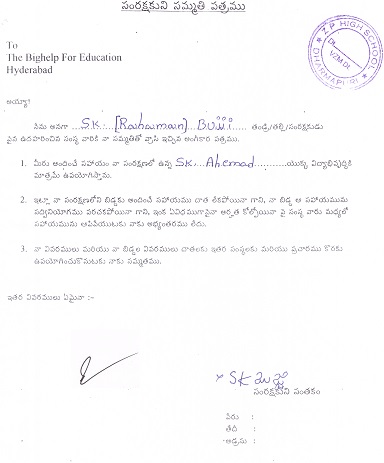 సంరక్షకుని సమ్మతి పత్రము
Z.P HIGH SCHOOL
Dt.
VZM.Dt.
DHARMAPURI
To
The Bighelp For Education
Hyderabad
అయ్యా!
నేను అనగా SK. [Raheman] BUJJI తండ్రి/తల్లి/సంరక్షకుడు
పైన ఉదహరించిన సంస్థ వారికి నా సమ్మతితో వ్రాసి ఇచ్చిన అంగీకార పత్రము.
1. మీరు అందించే సహాయం నా సంరక్షణలో ఉన్న SK. Ahemad యొక్కు విద్యాభివృద్ధికి
మాత్రమే ఉపయోగిస్తాను.
2. ఇట్లా నా సంరక్షణలోని బిడ్డకు అందించే సహాయము దాత లేకపోయినా గాని, నా బిడ్డ ఆ సహాయమును
సద్వినియోగము పరచకపోయినా గాని, ఇంక ఏవిధముగానైనా అర్హత కోల్పోయినా పై సంస్థ వారు మధ్యలో
సహాయమును ఆపివేయుటకు నాకు అభ్యంతరము లేదు.
3. నా వివరములు మరియు నా బిడ్డల వివరములు దాతలకు ఇతర సంస్థలకు మరియు ప్రచారము కొరకు
ఉపయోగించుకొనుటకు నాకు సమ్మతము.
ఇతర వివరములు ఏమైనా :-
× SK బుజ్జి
సంరక్షకుని సంతకం
పేరు :
తేదీ :
అడ్రసు :